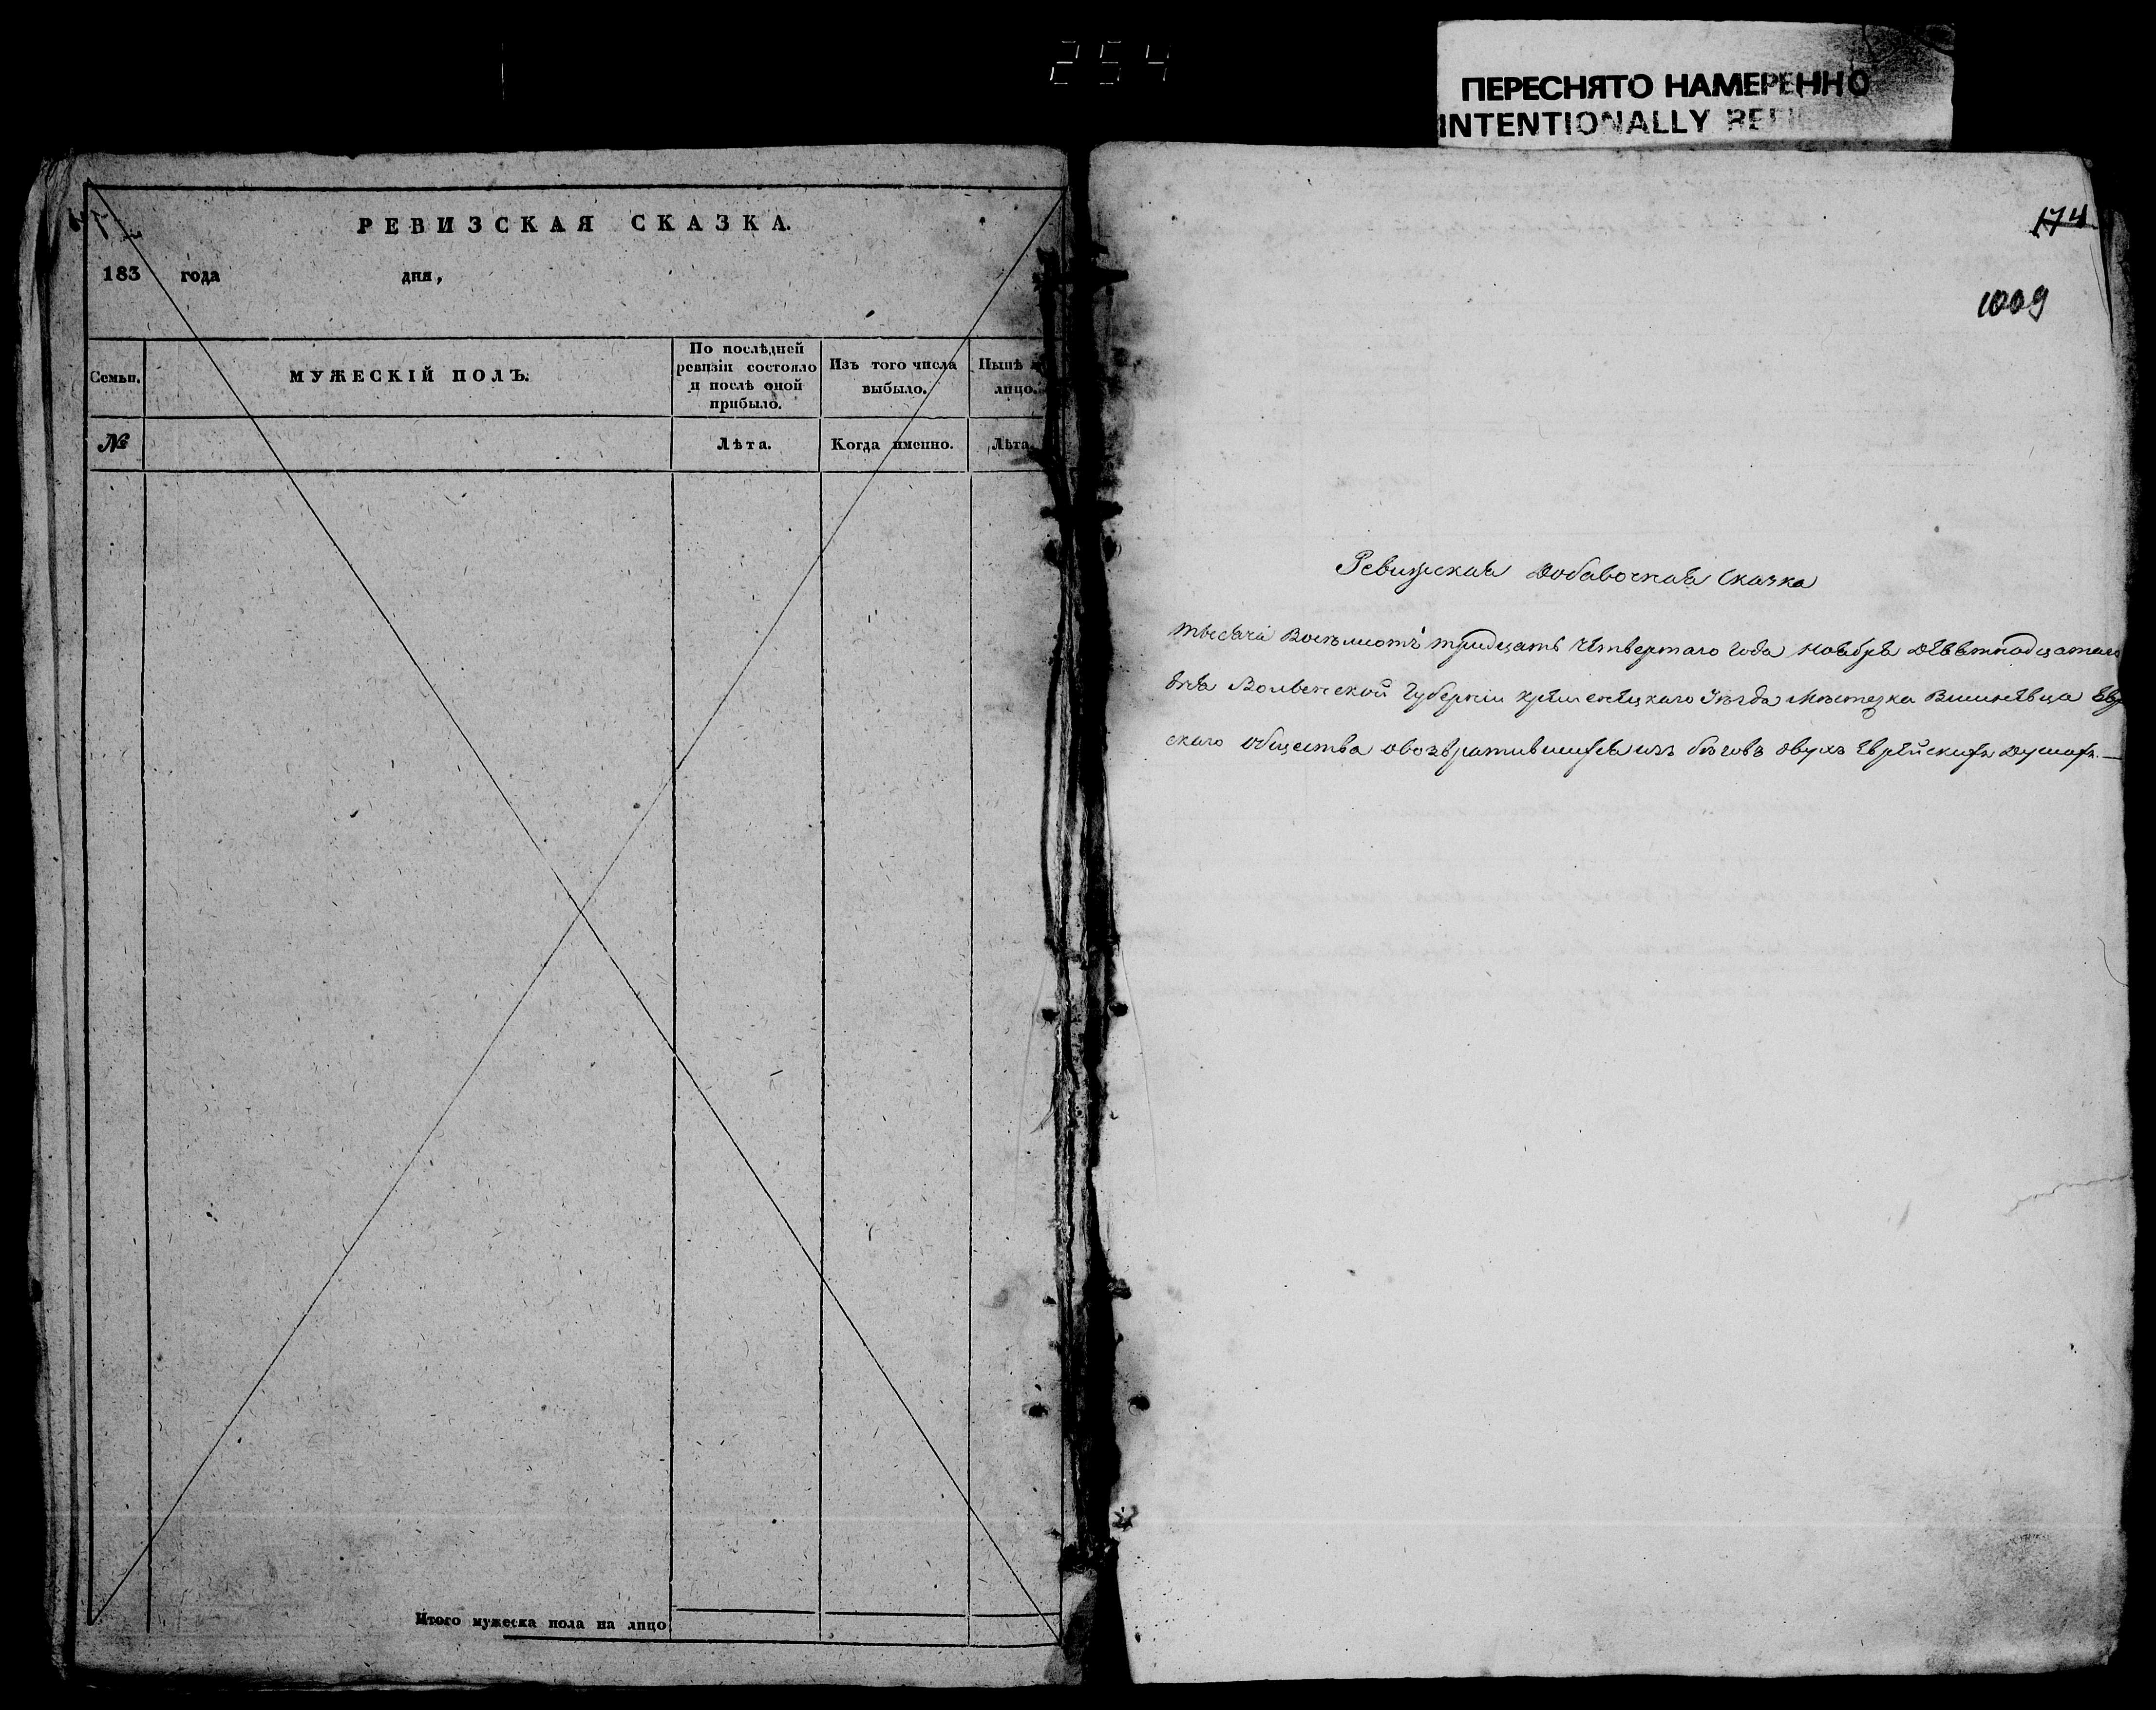 254
ПЕРЕСНЯТО НАМЕРЕННО
INTENTIONALLY
РЕВИЗСКАЯ СКАЗКА.
183 года дня,
Семьи.
МУЖЕСКІЙ ПОЛЪ.
По послѣдней
ревизіи состояло
и послѣ оной
прибыло.
Изъ того числа
выбыло.
Нынѣ
лицо.
№
Лѣта.
Когда именно.
Лѣта.
Итого мужеска пола на лицо
174
1009
Ревизская Добавочная Сказка
тысяча Восемьсотъ тридцать четвертаго года Ноября девятнадцатаго
дня Волынской Губерніи Кременецкаго Уѣзда Мѣстечка Вишневца Евр
скаго общества о возвратившихся изъ бѣговъ двухъ Еврейскихъ Душахъ.—